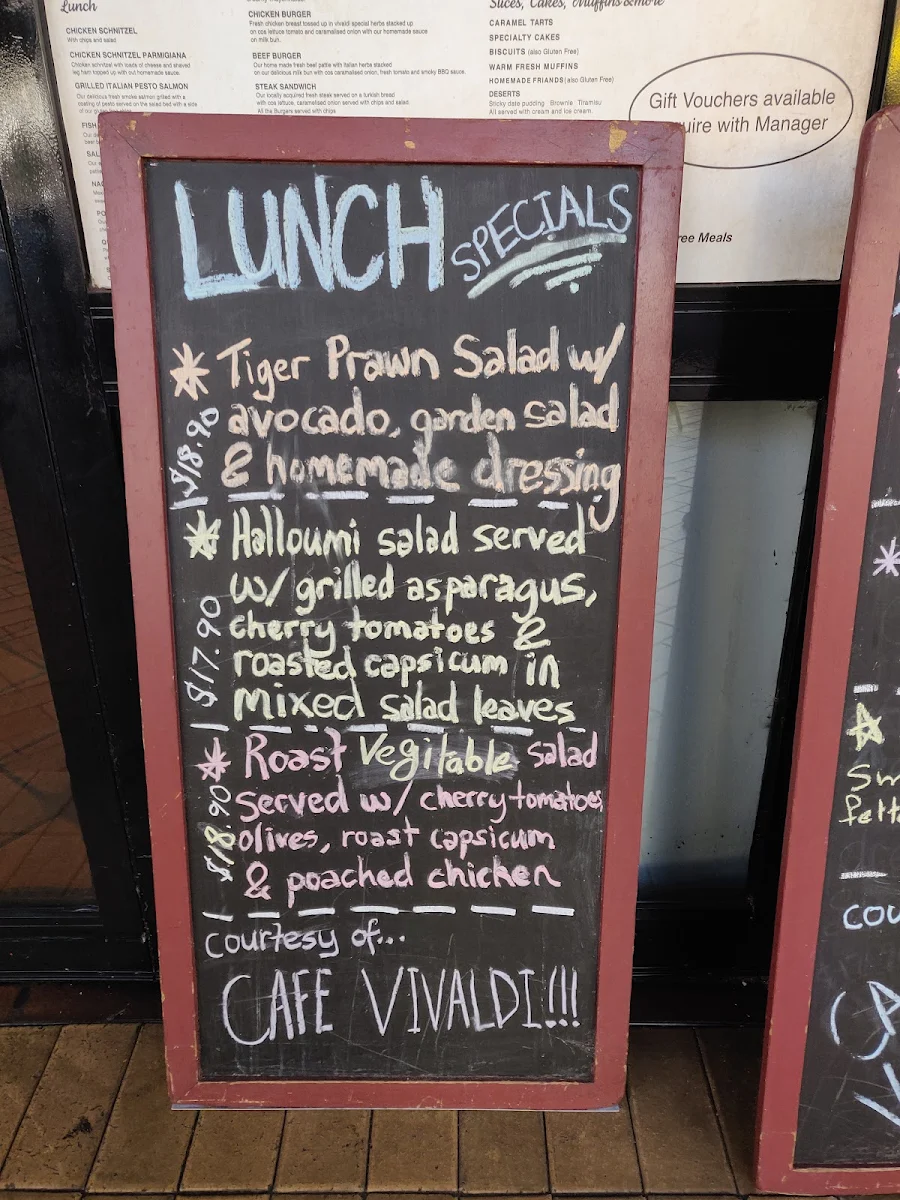 Lunch
CHICKEN SCHNITZEL
With chips and salad
CHICKEN SCHNITZEL PARMIGIANA
Chicken schnitzel with loads of cheese and shaved
leg ham topped up with out homemade sauce.
GRILLED ITALIAN PESTO SALMON
Our delicious fresh smoke salmon grilled with a
coating of pesto served on the salad bed with a side
CHICKEN BURGER
Fresh chicken breast tossed up in vivaldi special herbs stacked up
on cos lettuce tomato and caramelised onion with our homemade sauce
on milk bun.
BEEF BURGER
Our home made fresh beef patts with Italian herbs stacked
on our delicious milk bun with cos caramelised onion, fresh tomato and smoky BBQ sauce.
STEAK SANDWICH
Our locally acquired fresh steak served on a turkish bread
with cos lettuce, caramelised onion served with chips and salad.
All the Burgers served with chips
Slices, Cakes, Muffins & more
CARAMEL TARTS
SPECIALTY CAKES
BISCUITS (also Gluten Free)
WARM FRESH MUFFINS
HOMEMADE FRIANDS (also Gluten Free)
DESERTS
Sticky date pudding Brownie Tiramisu
All served with cream and ice cream.
Gift Vouchers available
uire with Manager
ree Meals
LUNCH SPECIALS
* Tiger Prawn Salad w/
avocado, garden salad
& homemade dressing
$18.90
* Halloumi salad served
w/ grilled asparagus,
cherry tomatoes &
roasted capsicum in
mixed salad leaves
$17.90
* Roast Vegitable salad
served w/ cherry tomatoes
olives, roast capsicum
& poached chicken
$18.90
courtesy of...
CAFE VIVALDI!!!